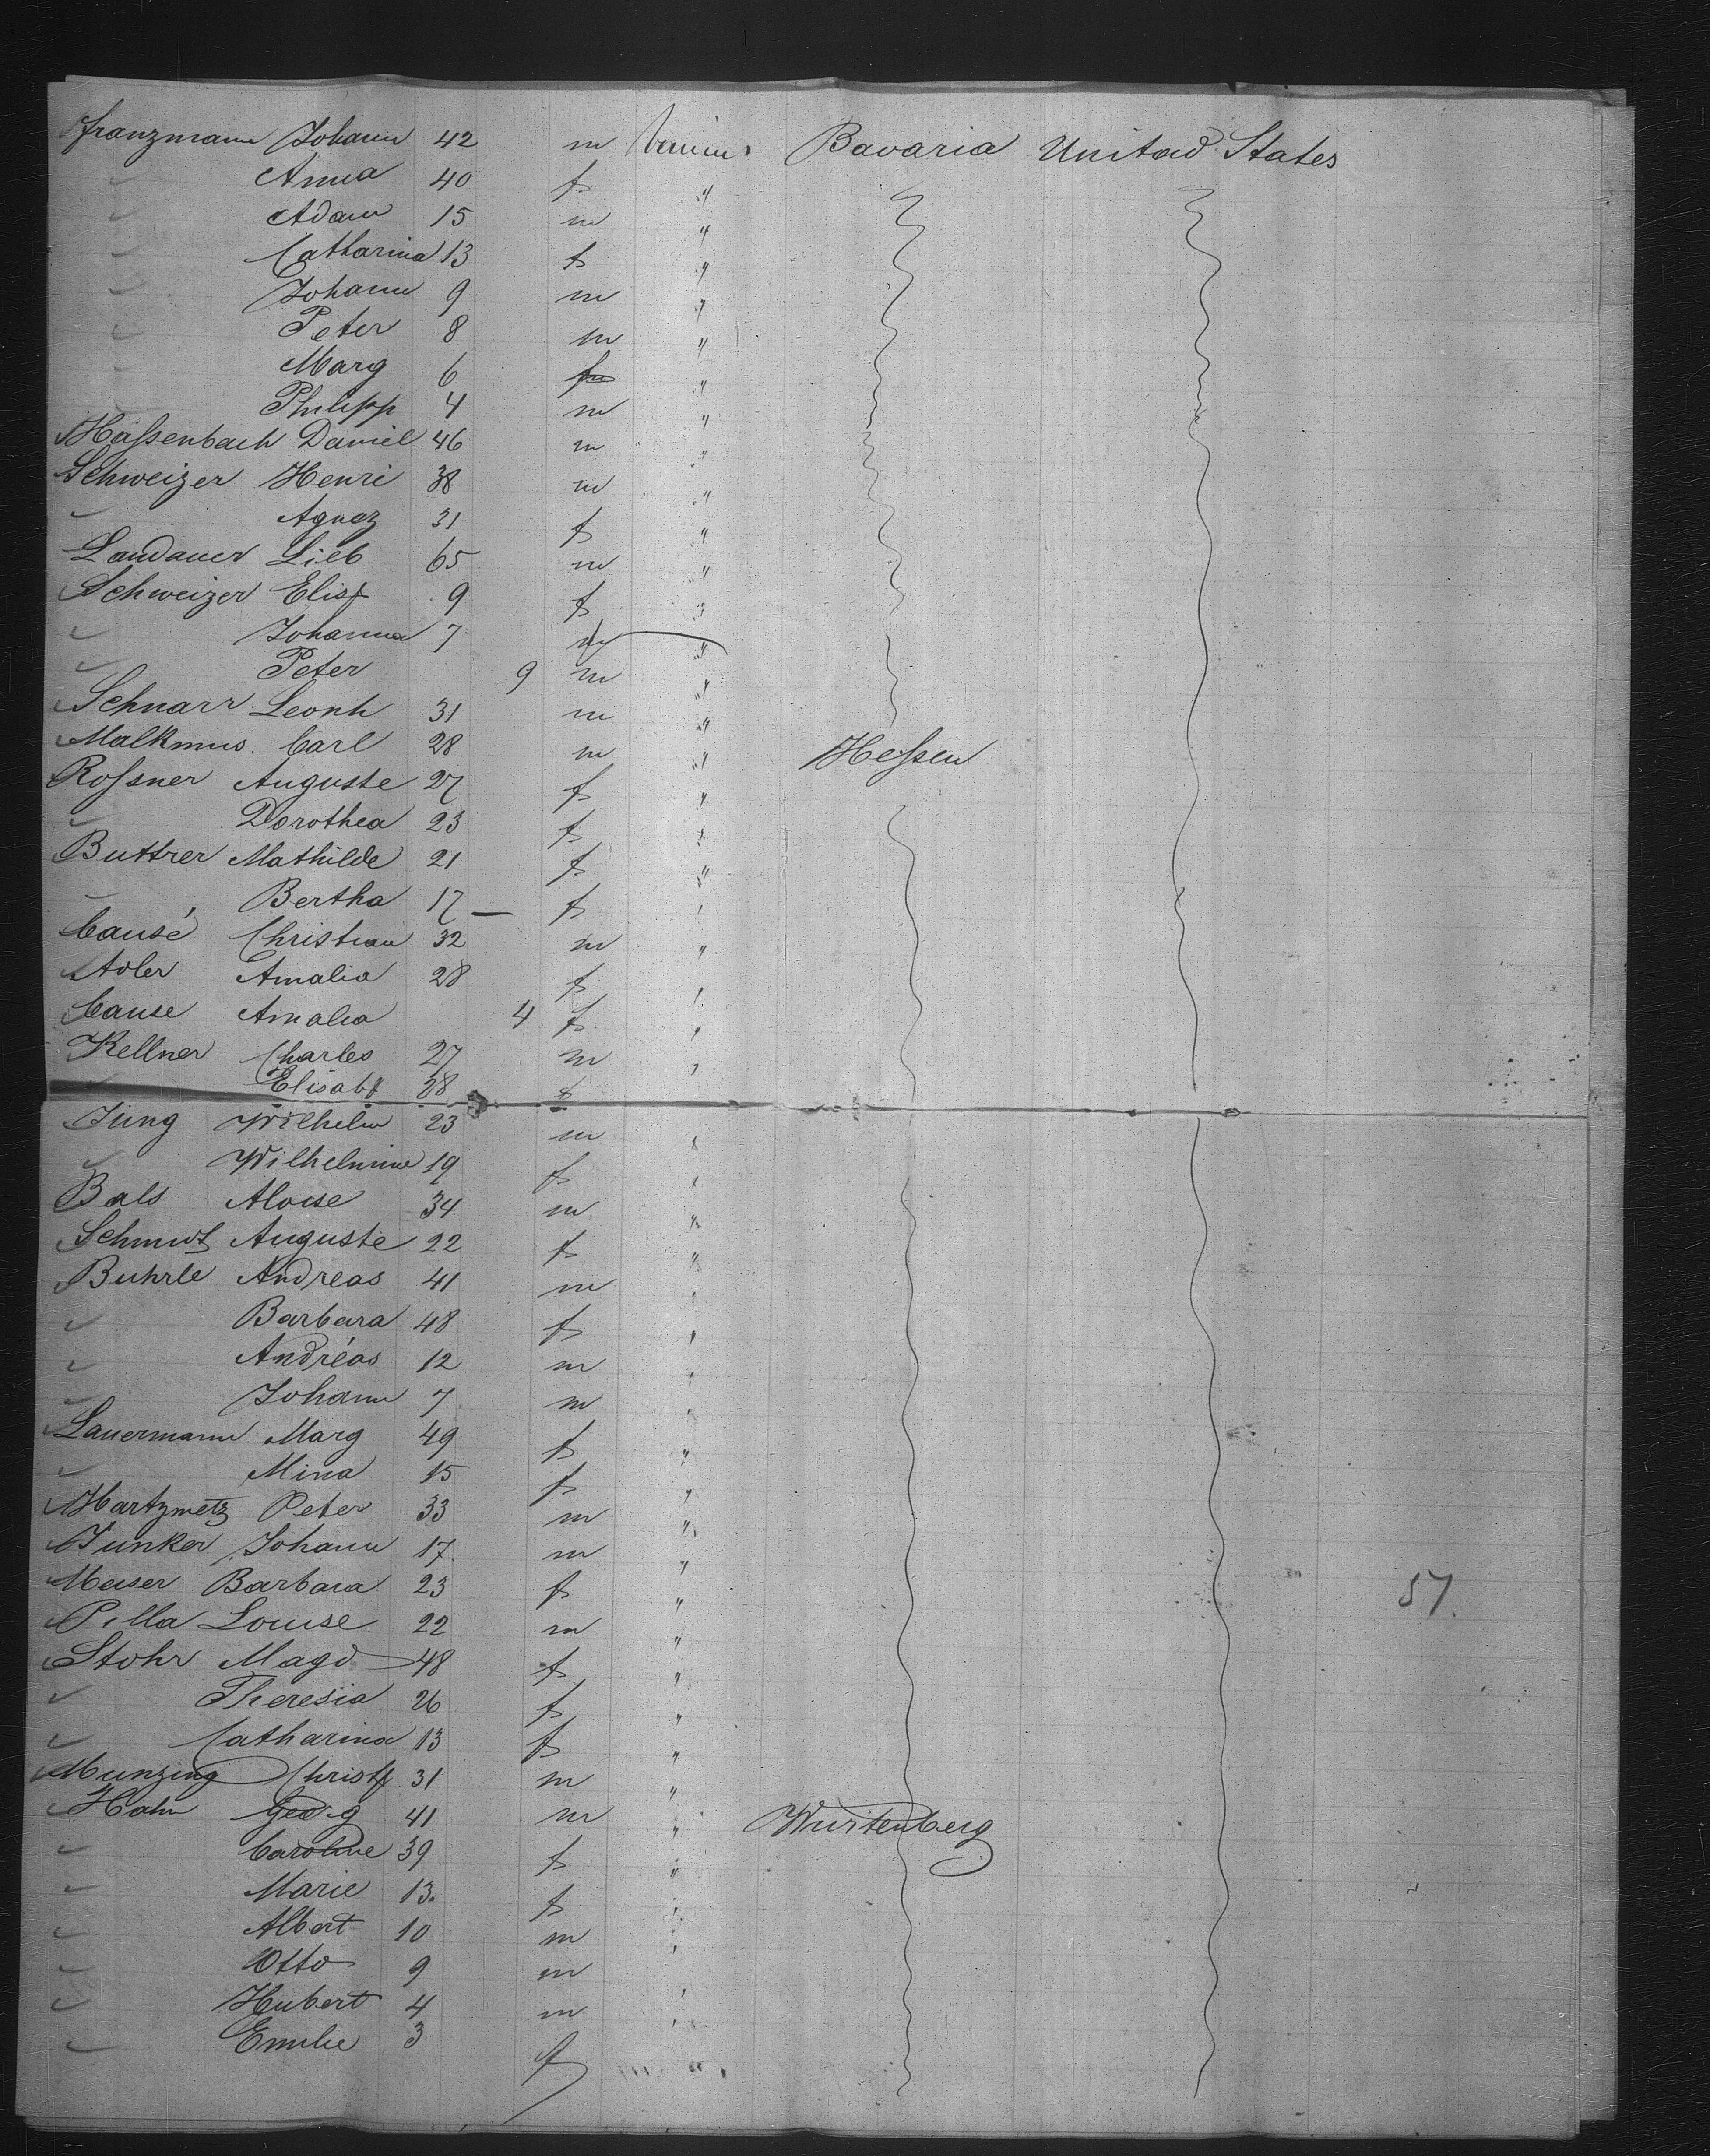 Franzmann Johann 42 m Bavaria United States
" Anna 40 f "
" Adam 15 m "
" Catharina 13 f "
" Johann 9 m "
" Peter 8 m "
" Marg 6 f "
" Philipp 4 m "
Haſsenbach Daniel 46 m "
Schweizer Henri 38 m "
" Agnez 31 f "
Landauer Lieb 65 m "
Schweizer Elisf 9 f "
" Johanna 7 "
" Peter 9 m "
Schnarr Leonh 31 m "
Malkmus Carl 28 m " Heſsen
Roſsner Auguste 27 f "
" Dorothea 23 f "
Buttrer Mathilde 21 f "
" Bertha 17 – f "
Causé Christian 32 m "
Adler Amalia 28 f "
Cause Amalia 4 f "
Kellner Charles 27 m "
" Elisabf 28 f
Jung Wilhelm 23 m "
" Wilhelmine 19 f "
Bals Aloise 34 m "
Schmidt Auguste 22 f "
Buhrle Andreas 41 m "
" Barbara 48 f "
" Andréas 12 m "
" Johann 7 m "
Lauermann Marg 49 f "
" Mina 15 f "
Hartzmetz Peter 33 m "
Junker Johann 17 m "
Meiser Barbara 23 f " 57.
Pilla Louise 22 m "
Stohr Magd 48 f "
" Theresia 26 f "
" Catharina 13 f "
Munzing Christf 31 m "
Hahn Georg 41 m " Wurtenberg
" Caroline 39 f "
" Marie 13. f "
" Albert 10 m "
" Otto 9 m "
" Hubert 4 m "
" Emilie 3 f "